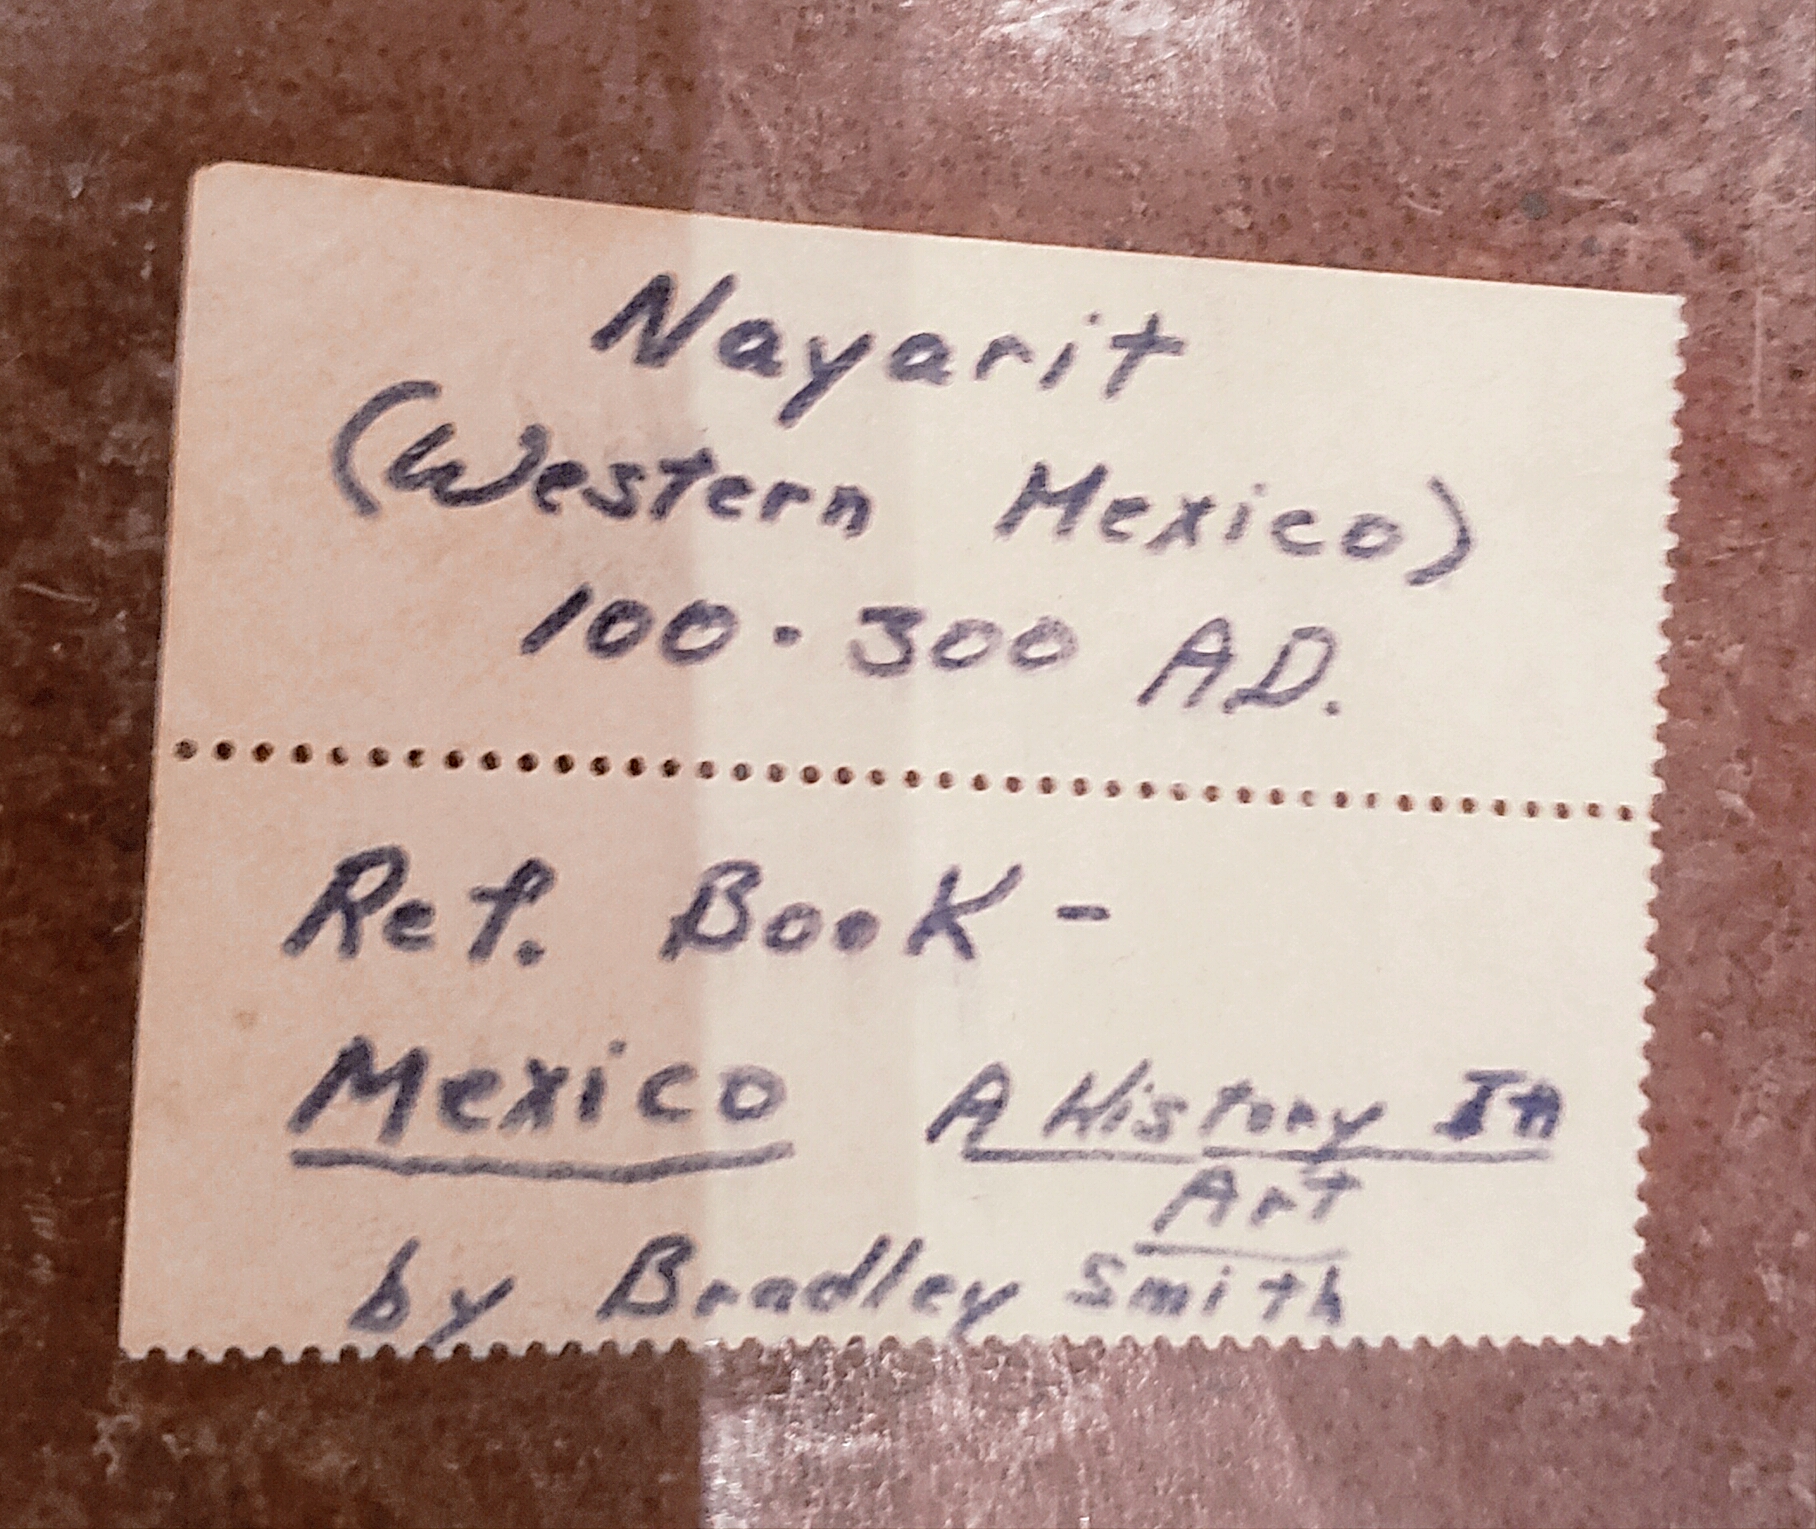 Nayarit
(Western Mexico)
100 - 300 AD.
Ref. Book -
Mexico A History In
Art
by Bradley Smith